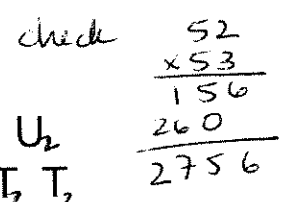 check 52
×53
156
260
2756
U₂
T₂ T₂